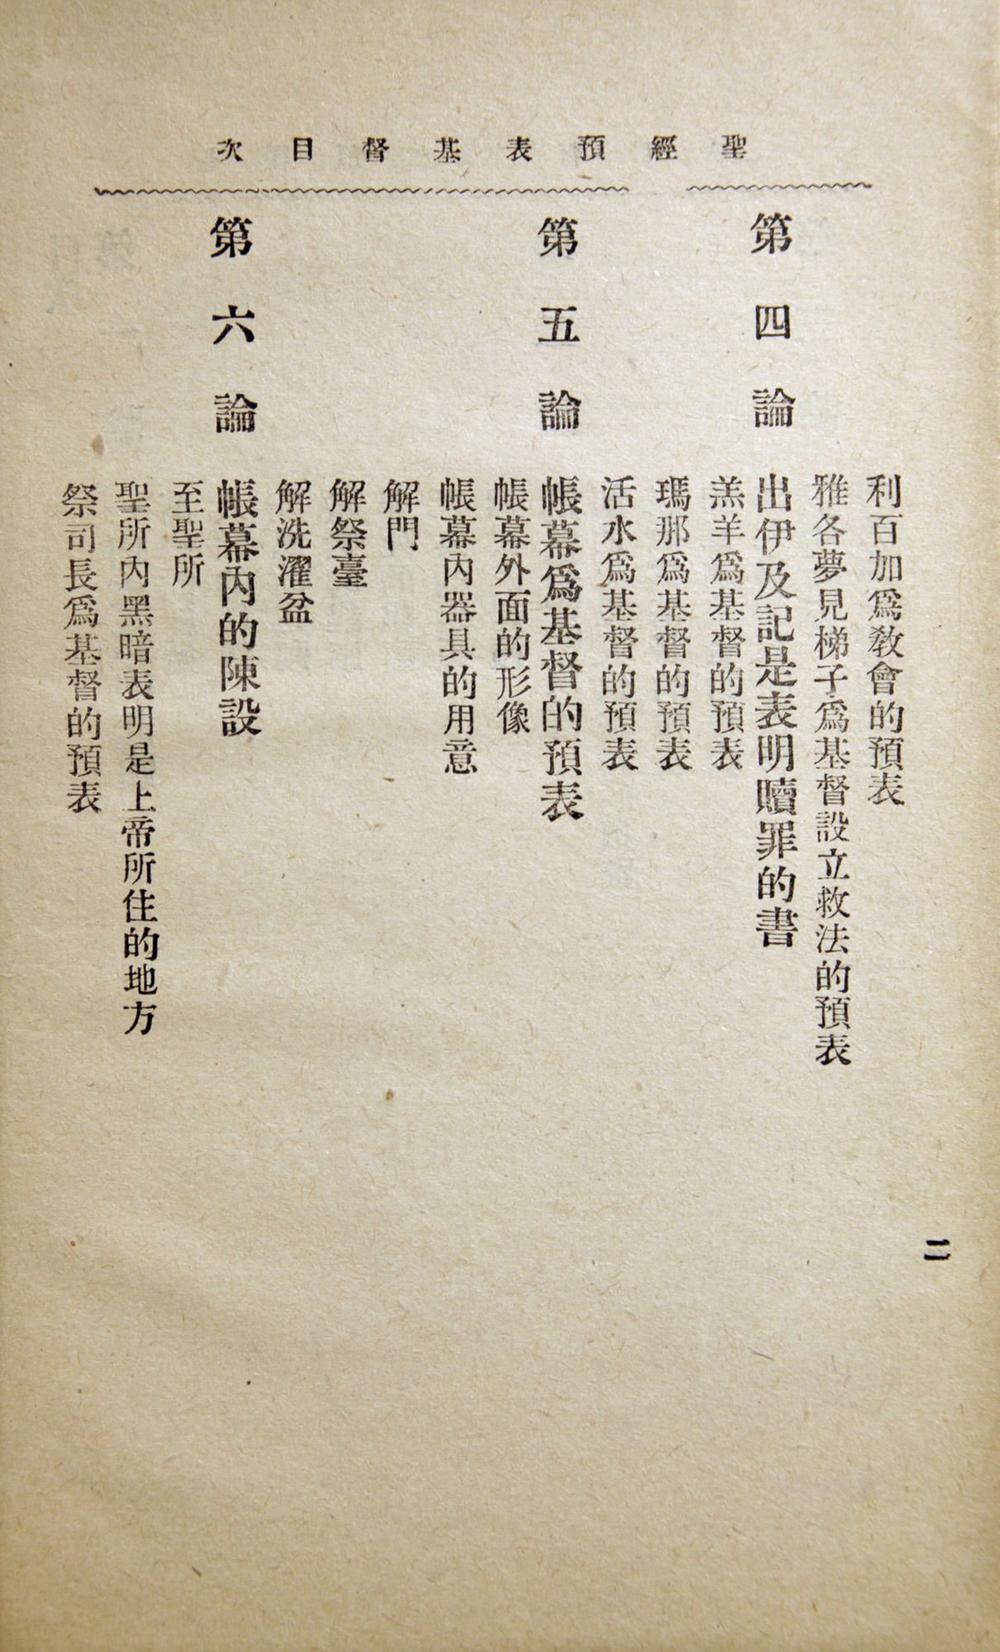 聖經預表基督目次
利百加爲敎會的預表
雅各夢見梯子爲基督設立救法的預表
第四論 出伊及記是表明贖罪的書
羔羊爲基督的預表
瑪那爲基督的預表
活水爲基督的預表
第五論 帳幕爲基督的預表
帳幕外面的形像
帳幕內器具的用意
解門
解祭臺
解洗濯盆
第六論 帳幕內的陳設
至聖所
聖所內黑暗表明是上帝所住的地方
祭司長爲基督的預表
二